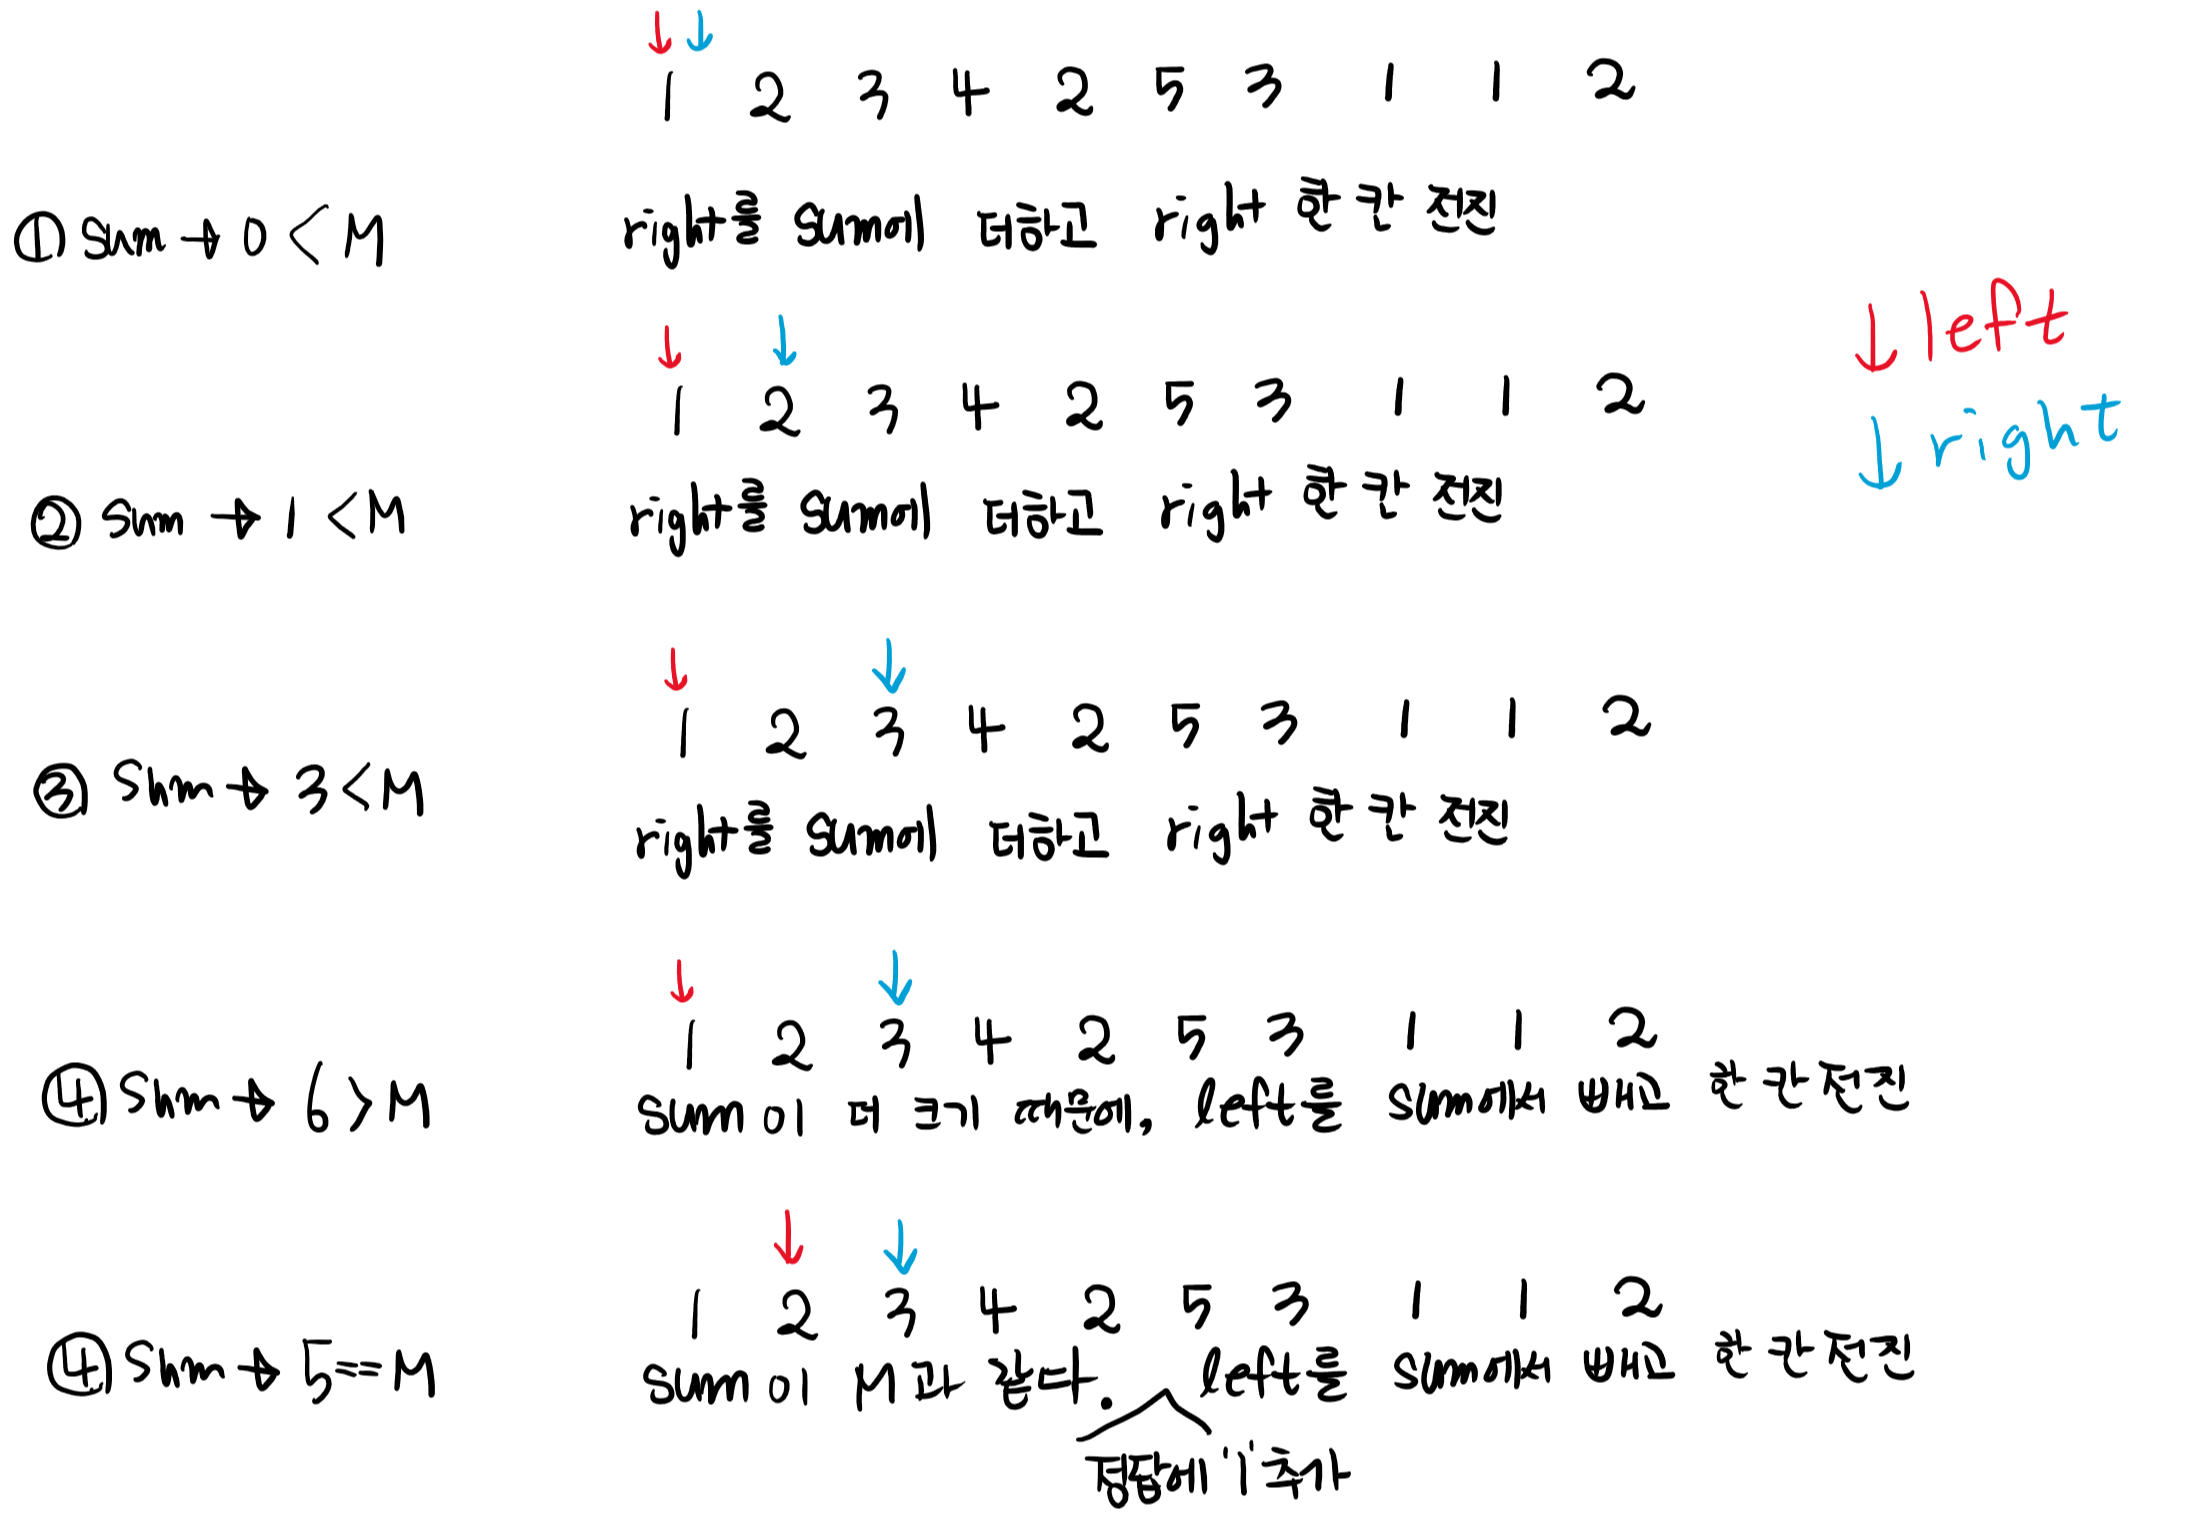 1 2 3 4 2 5 3 1 1 2
① sum → 0 < M right를 sum에 더하고 right 한 칸 전진
↓ left
1 2 3 4 2 5 3 1 1 2
↓ right
② sum → 1 < M right를 sum에 더하고 right 한 칸 전진
1 2 3 4 2 5 3 1 1 2
③ sum → 3 < M right를 sum에 더하고 right 한 칸 전진
1 2 3 4 2 5 3 1 1 2
④ sum → 6 > M sum이 더 크기 때문에, left를 sum에서 빼고 한 칸 전진
1 2 3 4 2 5 3 1 1 2
④ sum → 5 == M sum이 M과 같다. left를 sum에서 빼고 한 칸 전진
정답에 '1' 추가